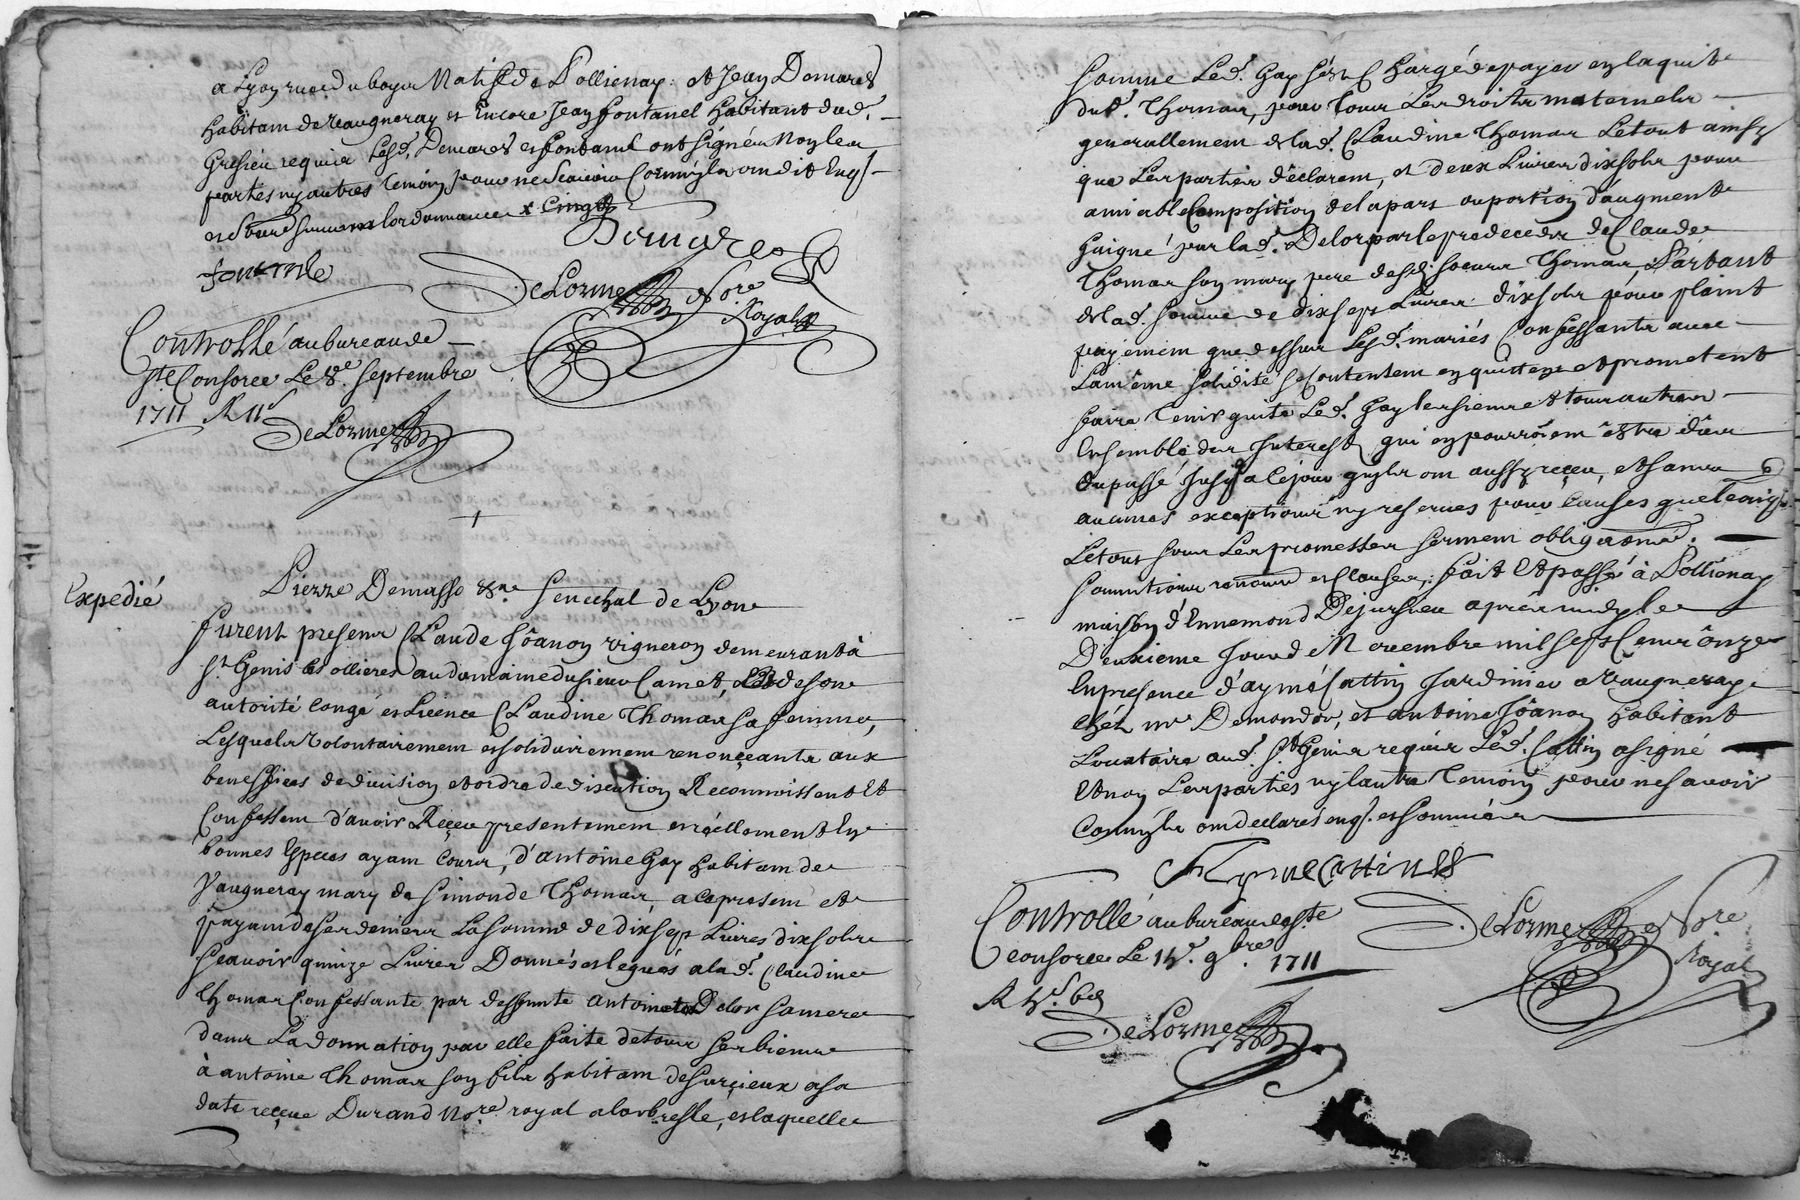 a Lyon rue du boyer Natif de Pollienay. et Jean Demares
habitam de Vaugneray et Encore Jean fontanel habitant dud.
Gresieu requis Lesd. Demares et fontanel ont signé et Non les
parties ny autres temoin pour ne Scavoir Comm'ils ont dit Enqs
et Sommes suivent lordonnance x
Demares
fontanele
DeLorme Nore
Royal
Controllé au bureau de
Ste Consorce Le 8e. septembre
1711 R 11s
DeLorme
Expedié
Pierre Demasso &ne Senechal de Lyon
furent presens Claude Jôanon vigneron demeurant à
St. Genis les ollieres au domaine du sieur Camet, et de son
autorité Congé et Licence Claudine Thomas sa femme,
Lesquels Volontairement et solidairement renonçants aux
beneffices de division et ordre de discution Reconnoissent et
Confessem d'avoir Reçeu presentement et réellement En
bonnes Especes ayam Cours, d'antoine Gay habitam de
Vaugneray mary de Simonde Thomas, a ce present et
payam de ses deniers La somme de dix sept Livres dix sols
Scavoir quinze Livres Donnés et legués a lad. Claudine
Thomas Confessante par deffunte antoinette Delor sa mere
dans La donnation par elle faite de tous ses biens
à antoine Thomas son fils habitam de Surçieux a sa
date reçeue Durand Nore. royal a larbresle, et laquelle
somme Led. Gay s'est Chargé de payer en laquite
dud. Thomas, pour tous Les droits maternels
generallement de lad. Claudine Thomas Le tout ainsy
que Les parties déclarem, et deux Livres dix sols pour
amiable Composition de la part ou portion d'augment
gaigné par lad. Delor par le predecedes de Claude
Thomas son mary pere desd. soeurs Thomas, Partant
de lad. somme de dix sept Livres dix sols pour plaint
payement que dessus Lesd. mariés Confessants avec
La même solidité se Contentem en quittent et prometent
faire tenir quite Led. Gay les siens et tous autres
Ensemble des Interest qui en pourroiem êtres dûs
du passé Jusqu'a Ce jour qu'ils om aussy reçeu, et sans
aucunes exceptions ny reserves pour Causes quelconqs.
Le tout sous Les promesses serment obligaôns
soumitions renonns et Clauses, fait et passé à Pollionay
maison d'Ennemond Dejursieu apres midy le
Deuxieme Jour de Novembre mil sept Cens ônze
En presence d'aymé Cattin Jardinier a Vaugneray
chéz mr Demondor, et antoine Jôanon habitant
Locataire aud. St. Genis requis Led. Cattin a signé
et non Les parties ny lautre temoin pour ne savoir
Comm'ils om declarés enqs. et sommés
Aymé Cattin
Controllé au bureau de Ste
Consorce Le 14e. 9bre. 1711
R
DeLorme
DeLorme Nore
Royal